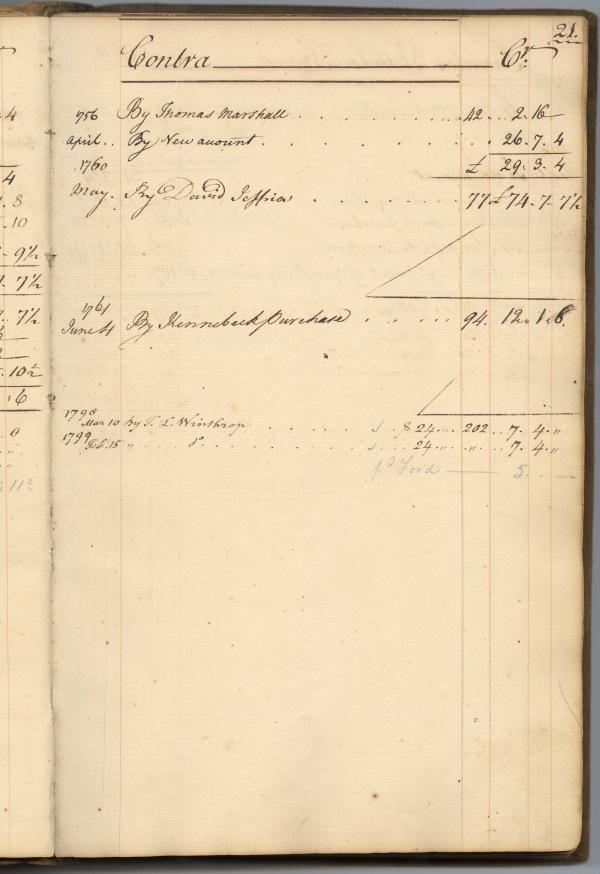 21.
Contra Cr.
1756 By Thomas Marshall 42 2. 16
April By New account 26. 7. 4
1760 £ 29. 3. 4
May. By David Jeffries 77 £74. 7. 7½
1761
June 4 By Kennebeck purchase 94. 12. 1. 6.
1798
Mar 10 by T. L. Winthrop $ 24 〃 202 7. 4. 〃
1799
Feb. 15 〃 do. 24. 〃 〃 7. 4. 〃
pd Ford 5.
4
4
8
10
9½
7½
7½
10½
6
0
11½